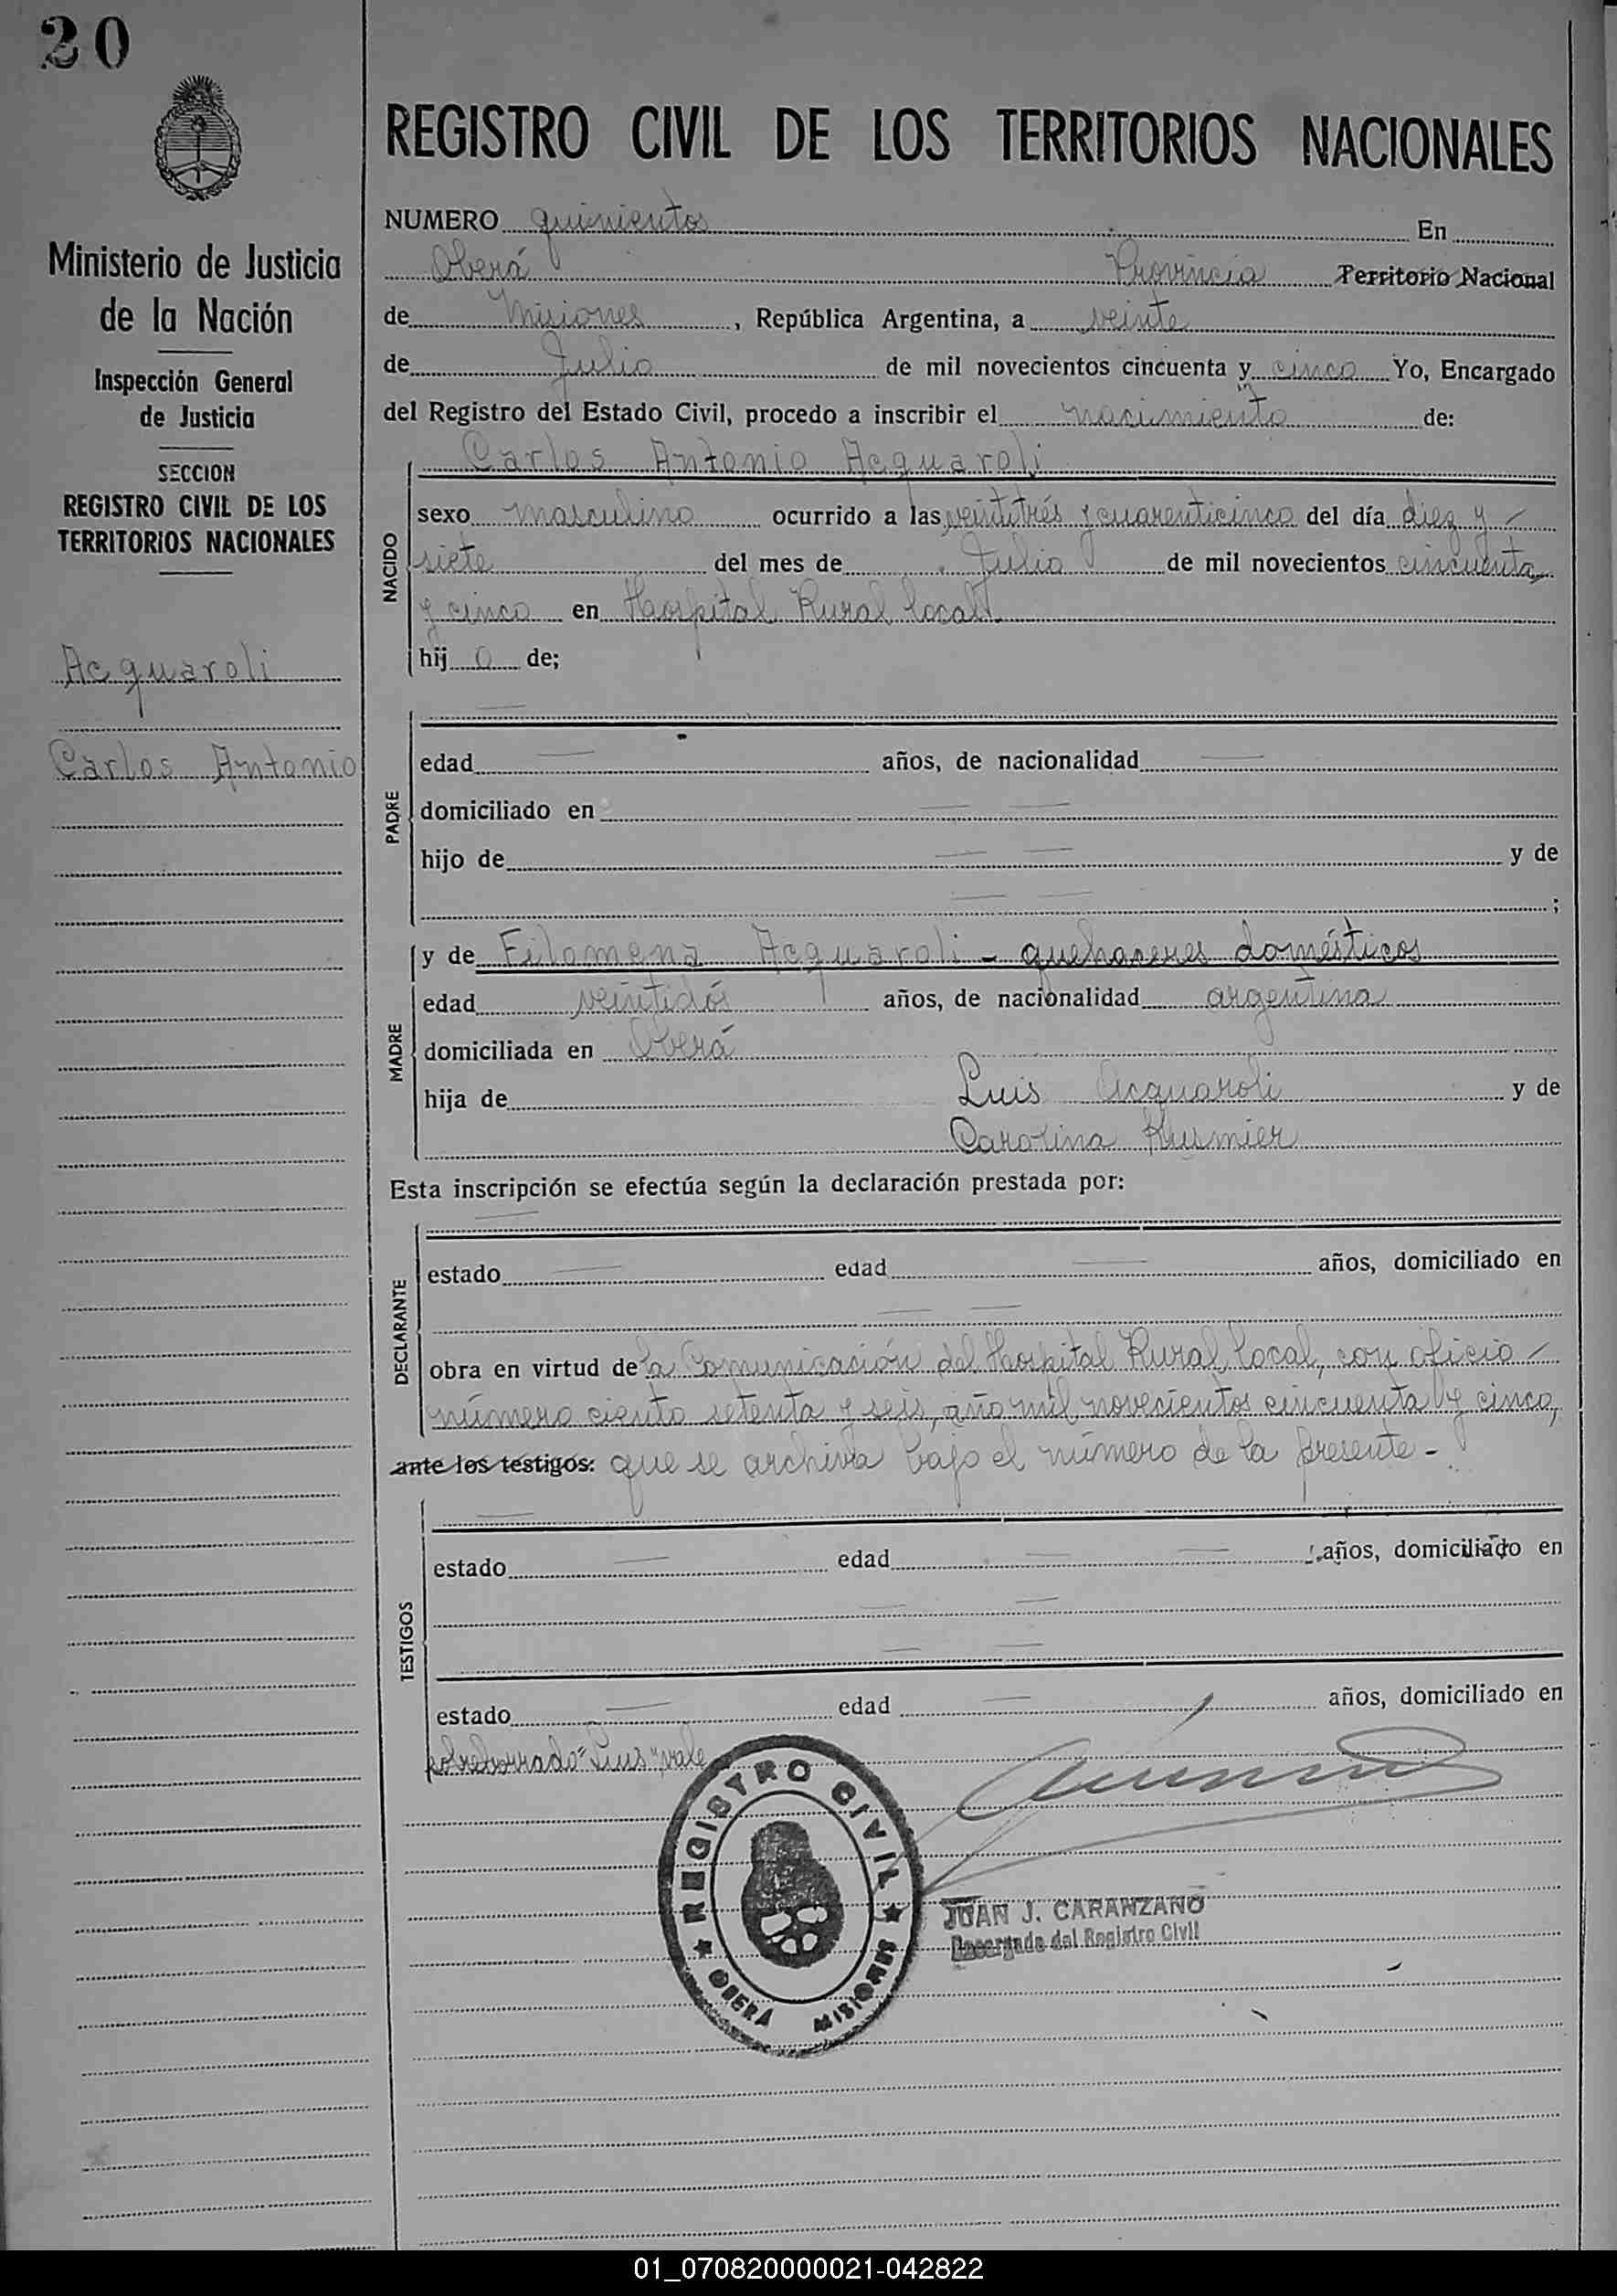 20
Ministerio de Justicia
de la Nación
Inspección General
de Justicia
SECCION
REGISTRO CIVIL DE LOS
TERRITORIOS NACIONALES
Acquaroli
Carlos Antonio
REGISTRO CIVIL DE LOS TERRITORIOS NACIONALES
NUMERO quinientos En
Oberá Provincia Territorio Nacional
de Misiones, República Argentina, a veinte
de Julio de mil novecientos cincuenta y cinco Yo, Encargado
del Registro del Estado Civil, procedo a inscribir el nacimiento de:
Carlos Antonio Acquaroli
NACIDO
sexo masculino ocurrido a las veintitrés y cuarenticinco del día diez y
siete del mes de Julio de mil novecientos cincuenta
y cinco en Hospital Rural local
hij o de;
PADRE
edad años, de nacionalidad
domiciliado en
hijo de y de
;
MADRE
y de Filomena Acquaroli - quehaceres domésticos
edad veintidós años, de nacionalidad argentina
domiciliada en Oberá
hija de Luis Acquaroli y de
Carolina
Esta inscripción se efectúa según la declaración prestada por:
DECLARANTE
estado edad años, domiciliado en
obra en virtud de la Comunicación del Hospital Rural local, con oficio
número ciento setenta y seis, año mil novecientos cincuenta y cinco,
ante los testigos: que se archiva bajo el número de la presente -
TESTIGOS
estado edad años, domiciliado en
estado edad años, domiciliado en
sobreborrado "Luis" vale
REGISTRO CIVIL
OBERÁ MISIONES
JUAN J. CARANZANO
Encargado del Registro Civil
01_070820000021-042822